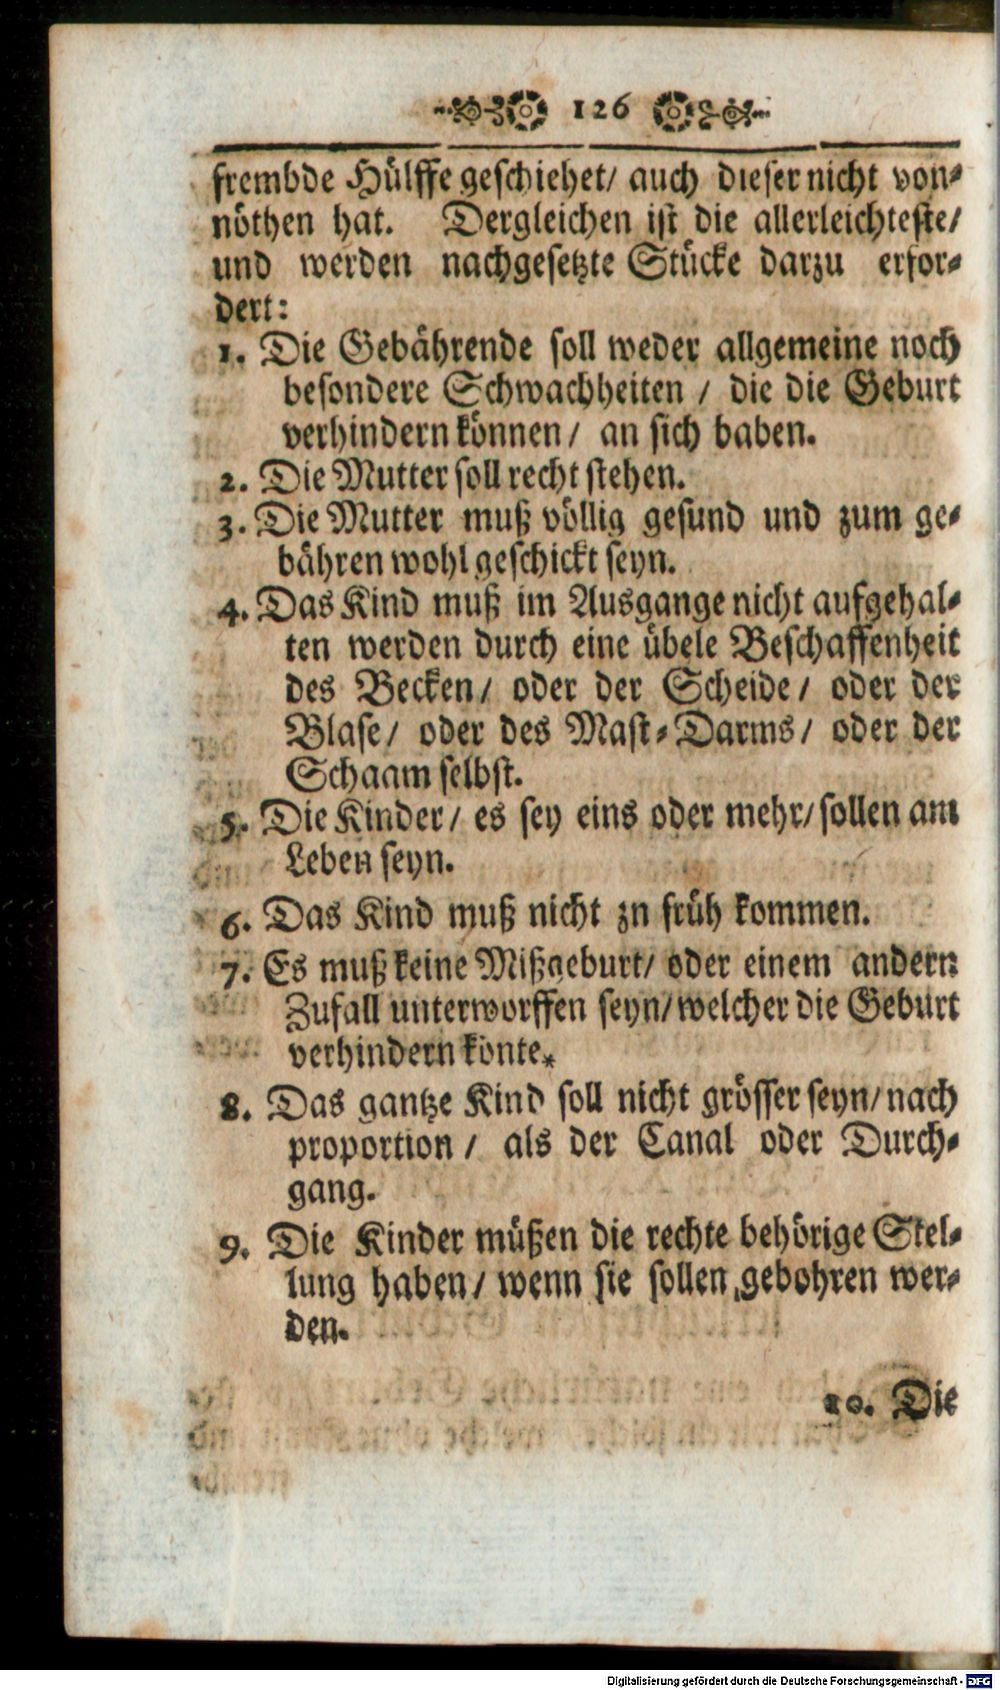 126
frembde Hülffe geschiehet/ auch dieser nicht von-
nöthen hat. Dergleichen ist die allerleichteste/
und werden nachgesetzte Stücke darzu erfor-
dert:
1. Die Gebährende soll weder allgemeine noch
besondere Schwachheiten / die die Geburt
verhindern können / an sich haben.
2. Die Mutter soll recht stehen.
3. Die Mutter muß völlig gesund und zum ge-
bähren wohl geschickt seyn.
4. Das Kind muß im Ausgange nicht aufgehal-
ten werden durch eine übele Beschaffenheit
des Becken/ oder der Scheide/ oder der
Blase/ oder des Mast-Darms/ oder der
Schaam selbst.
5. Die Kinder/ es sey eins oder mehr/ sollen am
Leben seyn.
6. Das Kind muß nicht zu früh kommen.
7. Es muß keine Mißgeburt/ oder einem andern
Zufall unterworffen seyn/ welcher die Geburt
verhindern könte.
8. Das gantze Kind soll nicht grösser seyn/ nach
proportion / als der Canal oder Durch-
gang.
9. Die Kinder müßen die rechte behörige Stel-
lung haben/ wenn sie sollen gebohren wer-
den.
10. Die
Digitalisierung gefördert durch die Deutsche Forschungsgemeinschaft - DFG